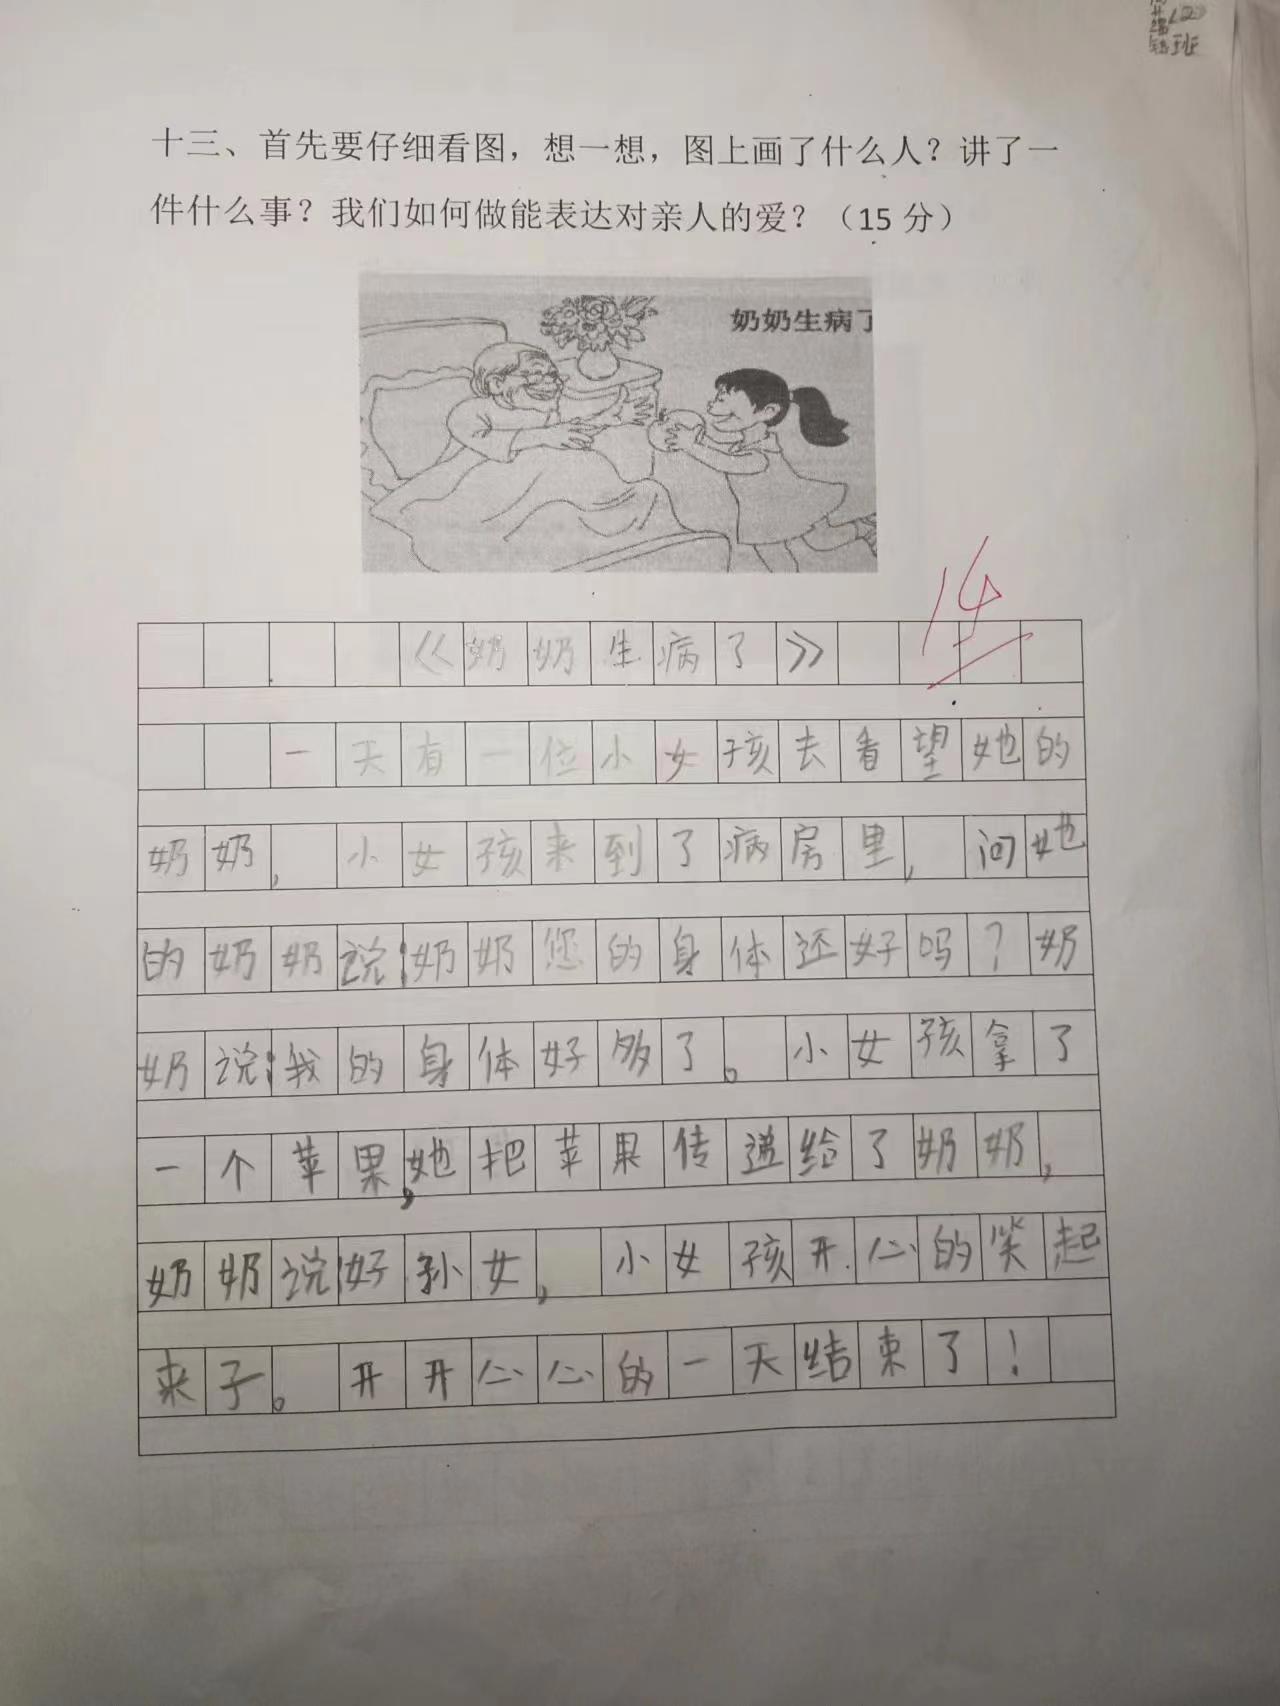 (2)
班
十三、首先要仔细看图，想一想，图上画了什么人？讲了一
件什么事？我们如何做能表达对亲人的爱？（15 分）
奶奶生病了
14
《奶奶生病了》
一天有一位小女孩去看望她的
奶奶，小女孩来到了病房里，问她
的奶奶说：奶奶您的身体还好吗？奶
奶说：我的身体好多了。小女孩拿了
一个苹果，她把苹果传递给了奶奶，
奶奶说：好孙女，小女孩开心的笑起
来子。开开心心的一天结束了！